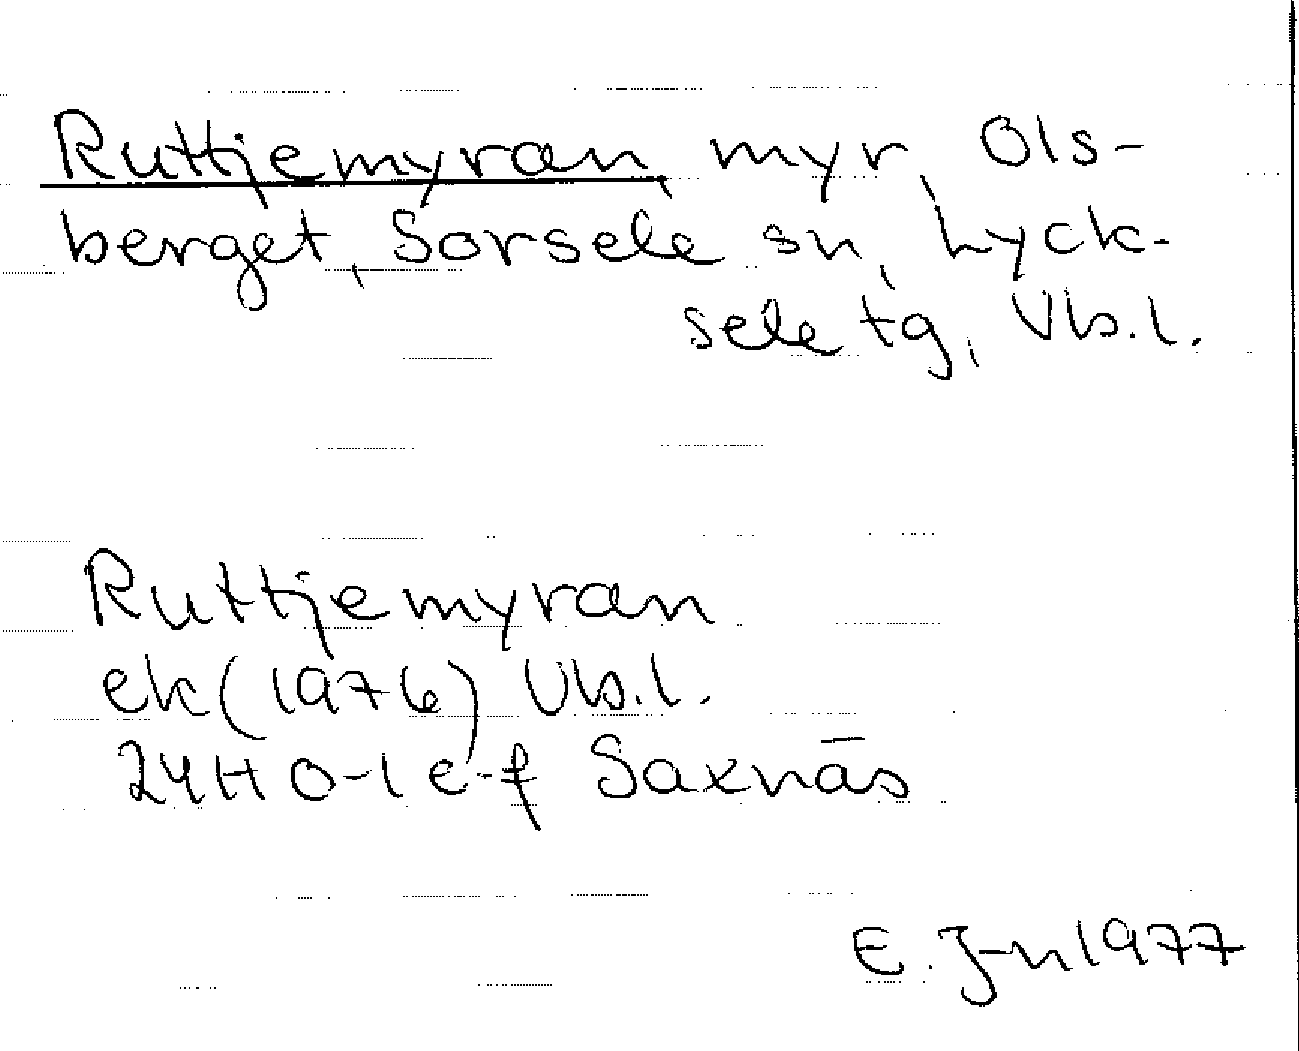 Ruttjemyran, myr, Ols-
berget, Sorsele sn, Lyck-
sele tg, Vb.l.
Ruttjemyran
ek (1976) Vb.l.
24H 0-1 e-f Saxnäs
E. J-n 1977